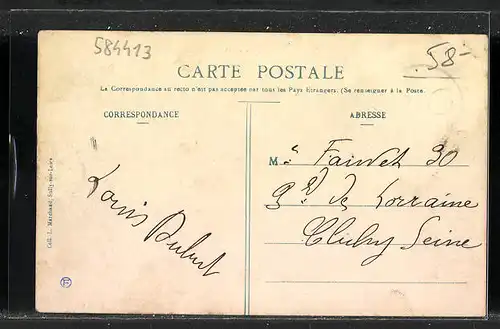 584413
58-
CARTE POSTALE
La Correspondance au recto n'est pas acceptée par tous les Pays Etrangers. (Se renseigner à la Poste.
CORRESPONDANCE
ADRESSE
Louis
M
30
de Lorraine
Clichy Seine
Coll. L. Marchand, Sully-sur-Loire